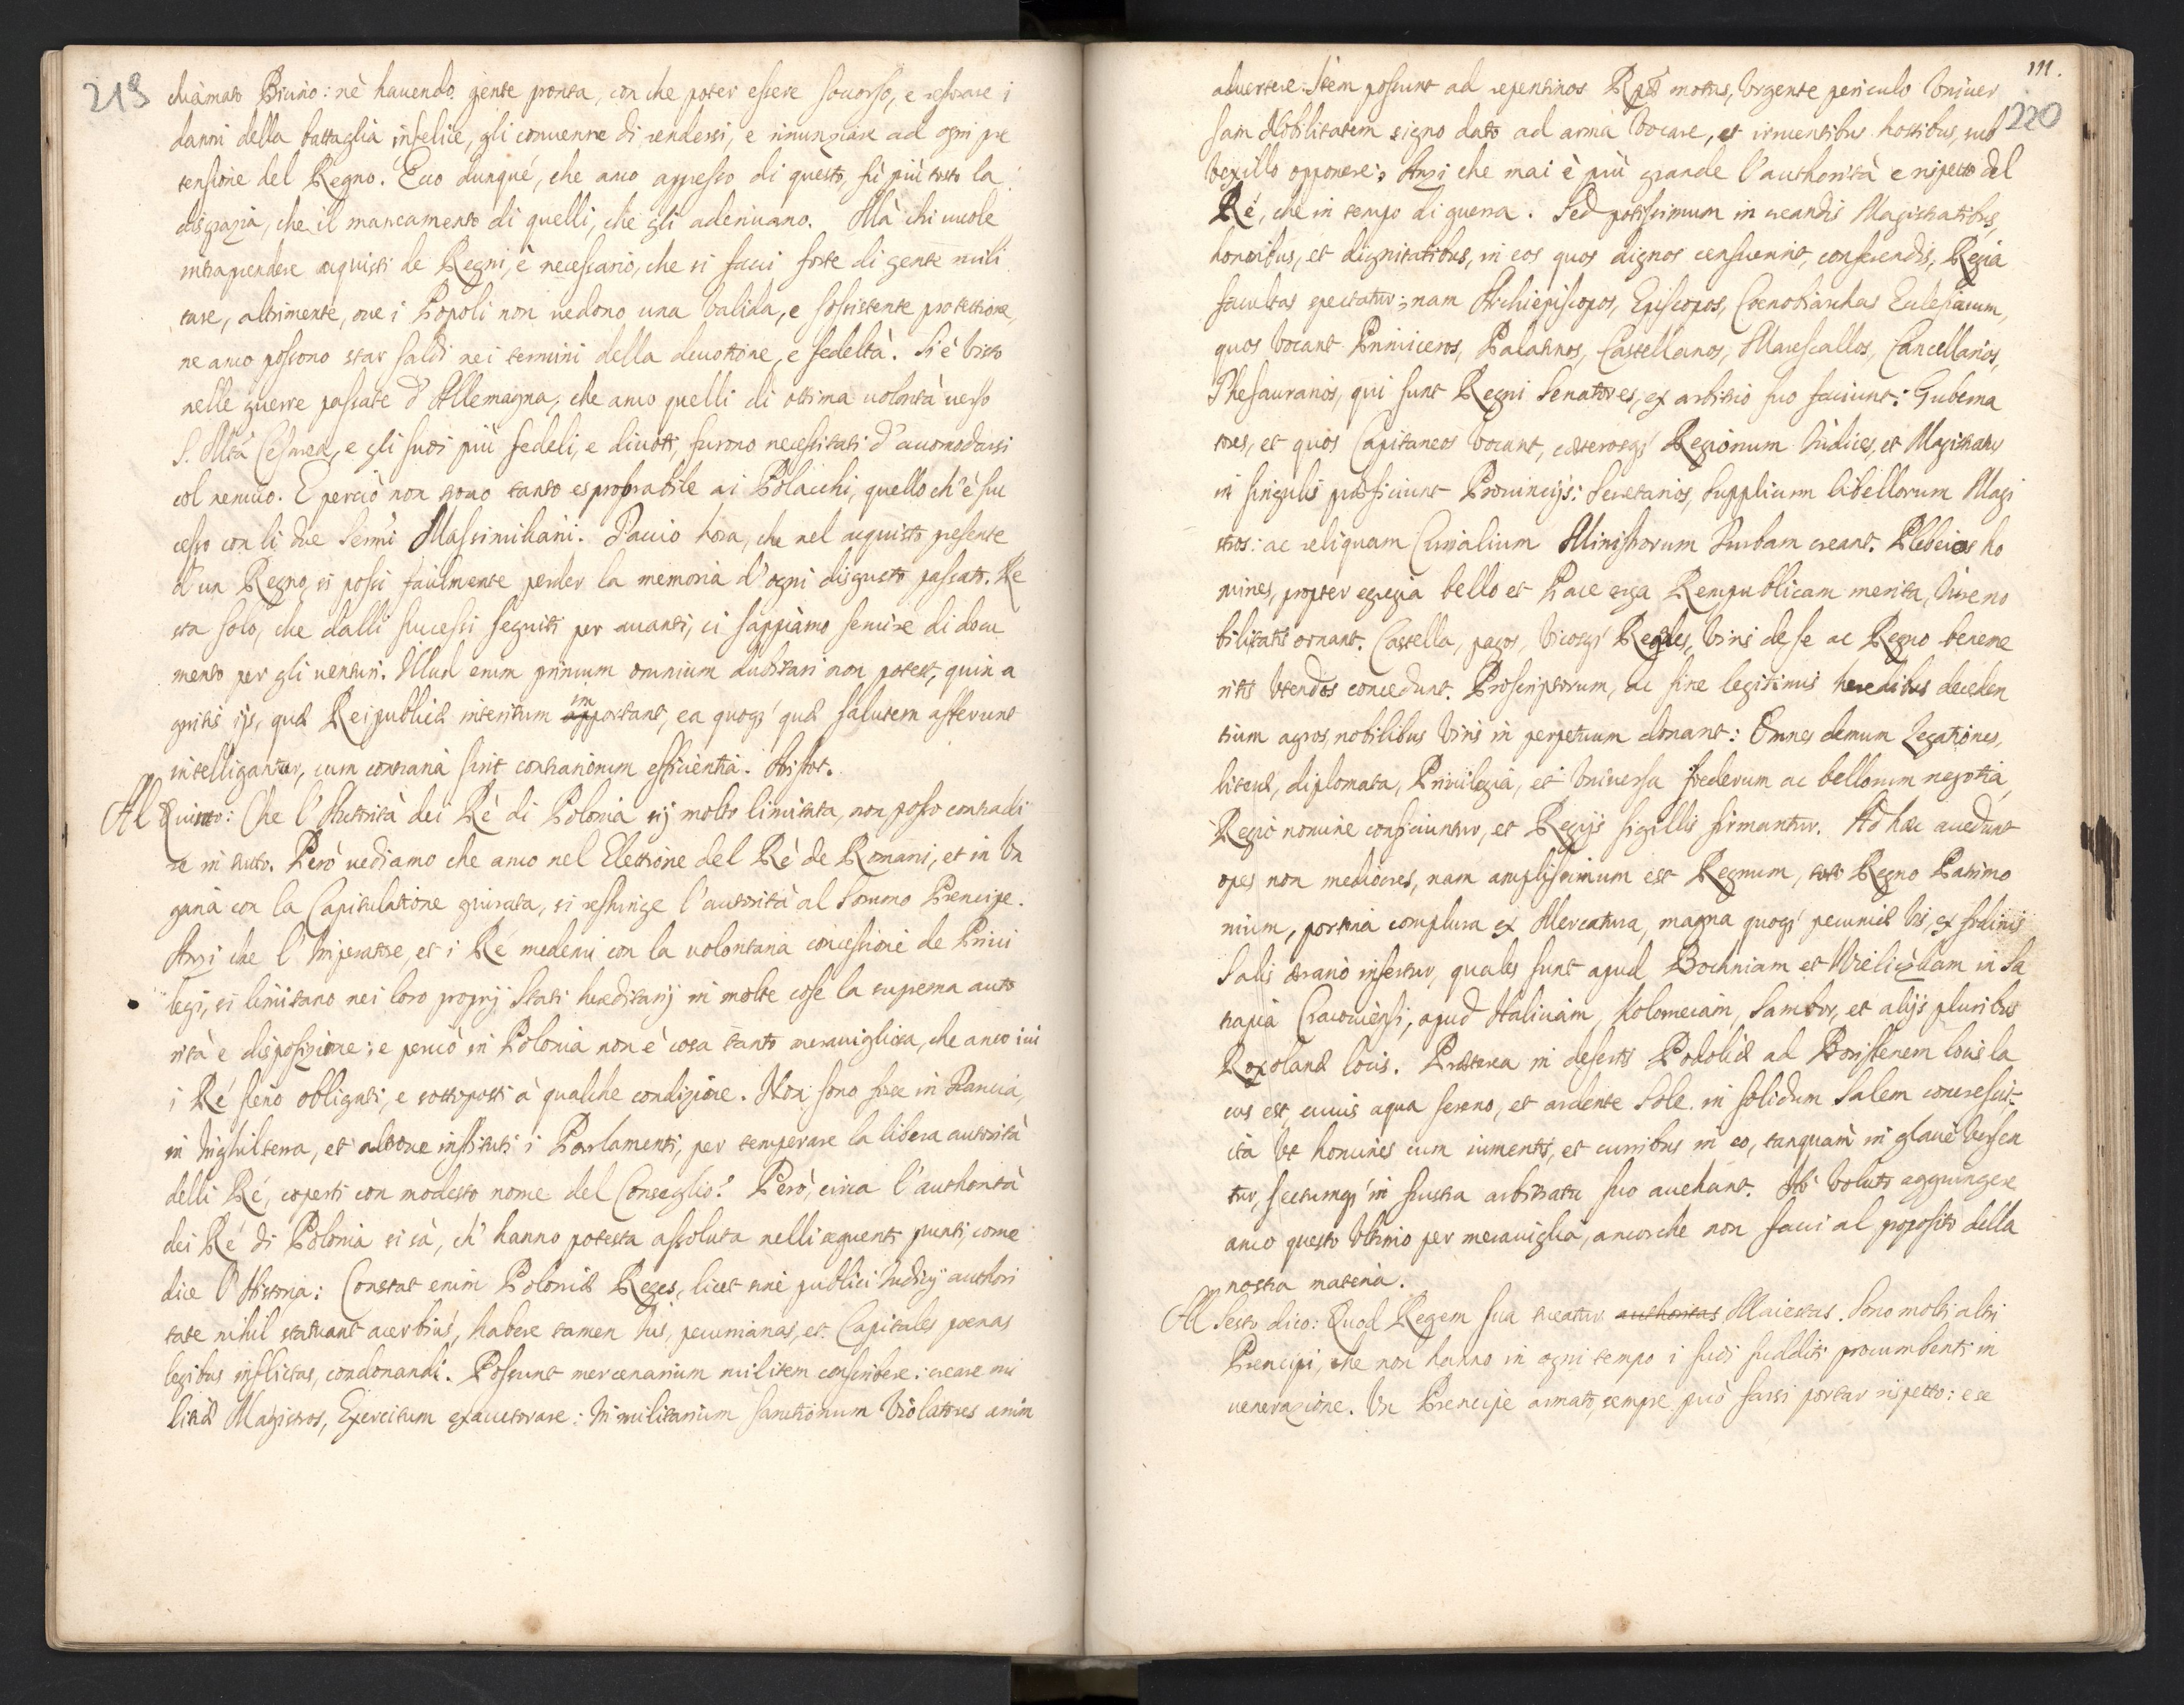 219
chiamato Briano: nè hauendo gente pronta, con che poter essere soccorso, e restorare i
danni della battaglia infelice, gli conuenne di rendersi, e rinunziare ad ogni pre
tensione del Regno. Ecco dunque, che anco appesso di questo, fù più tosto la
disgrazia, che il mancamento di quelli, che gli aderiuano. Mà chi uuole
intraprendere acquisti de Regni, è necessario, che si facci forte di gente mili
tare, altrimente, oue i Popoli non uedono una ualida, e sossistente protettione,
ne anco possono star saldi nei termini della deuottione, e fedeltà. Si è visto
nelle guerre passate d'Allemagna, che anco quelli di ottima uolontà uerso
S. Mtà Cesarea, e gli suoi più fedeli, e diuoti, furono necessitati d'accomodarsi
col nemico. E perciò non trouo tanto esprobrabile ai Polacchi, quello ch'è suc
cesso con li due Sermi Massimiliani. Taccio hora, che nel acquisto presente
d'un Regno, si possi facilmente perder la memoria d'ogni disgusto passato. Re
sta solo, che dalli successi seguiti per auanti, ci sappiamo seruire di docu
mento per gli uenturi. Illud enim primum omnium dubitari non potest, quin a
gnitis ijs, quæ Reipublicæ interitum im apportant, ea quoq; quæ salutem afferunt
intelligantur, cum contraria sint contrariorum efficientia. Aristot.
Al Quinto: Che l'Autorità dei Rè di Polonia sij molto limitata, non posso contradi
re in tutto. Però uediamo che anco nel Elettione del Rè de Romani, et in Un
garia con la Capitulatione giurata, si restringe l'autorità al Sommo Prencipe.
Anzi che l'Imperatore, et i Ré medemi con la uolontaria concessione de Priui
legi, si limitano nei loro proprij Stati hæditarij in molte cose la suprema auto
rità e disposizione; e perciò in Polonia non è cosa tanto merauigliosa, che anco iui
i Ré sieno obligati, e sottoposti à qualche condizione. Non sono forse in Francia,
in Inghilterra, et altroue instituti i Parlamenti, per temperare la libera autorità
delli Ré, coperti con modesto nome del Conseglio? Però, circa l'authorità
dei Ré di Polonia si sà, ch'hanno potesta assoluta nelli seguenti punti, come
dice l'Historia: Constat enim Poloniæ Reges, licet sine publici Iudicij authori
tate nihil statuant acerbius, habere tamen Ius, pecuniarias, et Capitales poenas
legibus inflictas, condonandi. Possunt mercenarium militem conscribere: creare mi
litiæ Magistros, Exercitum exauctorare: In militarium sanctionum Violatores anim
111.
220
aduertere. Item possunt ad repentinos Rpæ motus, Vrgente periculo Vniuer
sam Nobilitatem signo dato ad arma Vocare, et irruentibus hostibus, sub
Vexillo opponere; Anzi che mai è più grande l'authorità e rispetto del
Ré, che in tempo di guerra. Sed potissimum in creandis Magistratibus,
honoribus, et dignitatibus, in eos quos dignos censuerint, conferendis, Regia
facultas spectatur; nam Archiepiscopos, Episcopos, Coenobiarchas Eclesiarum,
quos Vocant Primiceros, Palatinos, Castellanos, Marescallos, Cancellarios,
Thesaurarios, qui sunt Regni Senatores, ex arbitrio suo faciunt: Guberna
tores, et quos Capitaneos Vocant, cæterosq; Regionum Iudices, et Magistratus
in singulis præficiunt Prouincijs: Secretarios, Supplicum libellorum Magi
stros: ac reliquam Curialium Ministrorum Turbam creant. Plebeios ho
mines, propter egregia bello et Pace erga Rempublicam merita, Iure no
bilitatis ornant. Castella, pagos, Vicosq; Regales, Viris de se ac Regno beneme
ritis Vtendos concedunt. Proscriptorum, ac sine legitimis heredibus deceden
tium agros, nobilibus Viris in perpetuum donant: Omnes demum Legationes,
literæ, diplomata, Priuilegia, et Vniuersa foederum ac bellorum negotia,
Regio nomine conficiuntur, et Regijs sigillis firmantur. Ad hæc accedunt
opes non mediocres, nam amplissimum est Regnum, toto Regno Patrimo
nium, portoria complura ex Mercatura, magna quoq; pecuniæ Vis, ex fodinis
Salis ærario infertur, quales sunt apud Bochniam et Wieliczkam in Sa
trapia Cracouiensi, apud Haliciam, Kolomeiam, Sambor, et alijs pluribus
Roxolanæ locis. Præterea in desertis Podoliæ ad Boristenem locus la
cus est, cuius aqua sereno, et ardente Sole in solidum Salem concrescit.
ita Vt homines cum iumentis, et curribus in eo, tanquam in glacie Versen
tur, sectumq; in frusta arbitratu suo auehant. Hò Voluto aggiungere
anco questo Vltimo per merauiglia, ancorche non facci al proposito della
nostra materia.
Al Sesto dico: Quod Regem sua tueatur authoritas Maiestas. Sono molti altri
Prencipi, che non hanno in ogni tempo i suoi sudditi procumbenti in
uenerazione. Un Prencipe armato, sempre può farsi portar rispetto: e se